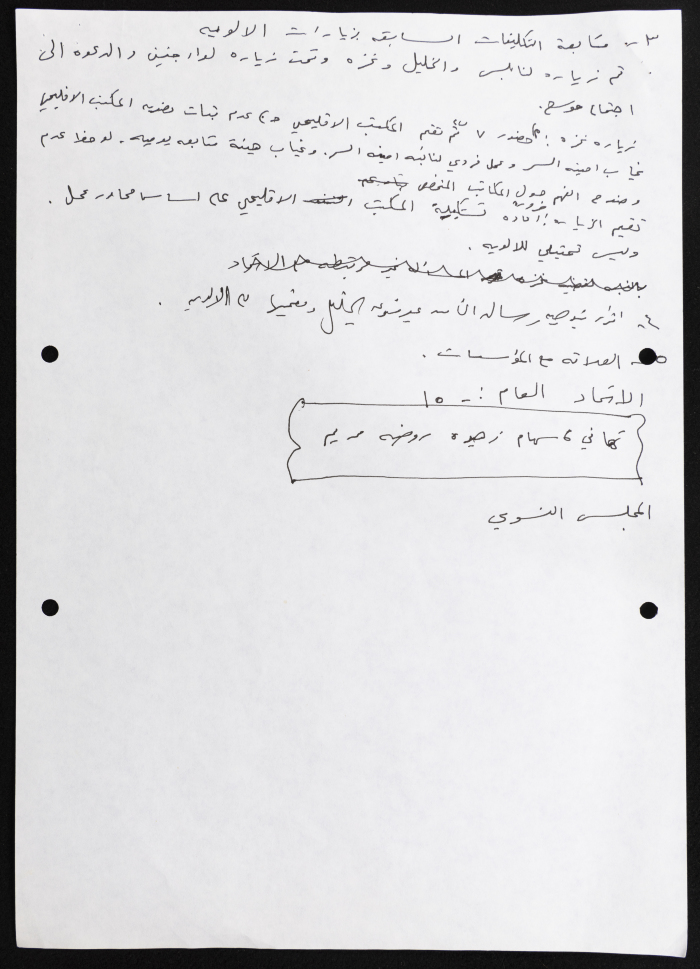 ٣- متابعة التكليفات السابقة بزيارات الالوية
تم زيارة نابلس والخليل وغزه وتمت زياره لواء جنين والدعوه الى
اجتماع موسع.
زياره غزه : حضور ٧ تم تقيم المكتب الاقليمي عدم ثبات عضويه المكتب الاقليمي
غياب امينه السر وعمل فردي لنائبه امينه السر. وغياب هيئة متابعه يوميه. لوحظ عدم
وضوح الفهم حول المكاتب
تقيم الزياره : اعاده تشكيلة المكتب الاقليمي على اساس محاور عمل.
وليس تمثيلي للالويه.
٤- اقرار توصيه رسالة الخليل وتعميمها على الالويه.
٥- العلاقه مع المؤسسات.
الاتحاد العام :- ١٥
تهاني ، سهام زهيره روضه مريم
المجلس النسوي